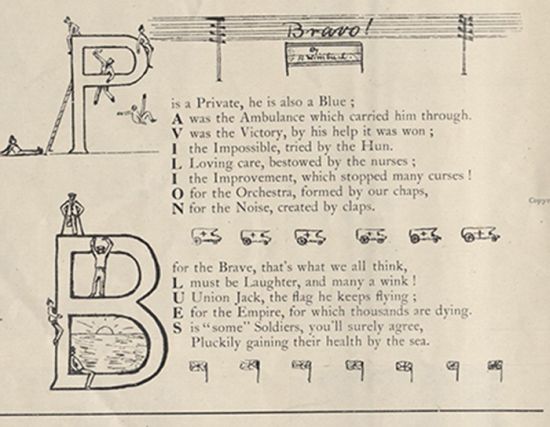 Bravo!
By
P is a Private, he is also a Blue ;
A was the Ambulance which carried him through.
V was the Victory, by his help it was won ;
I the Impossible, tried by the Hun.
L Loving care, bestowed by the nurses ;
I the Improvement, which stopped many curses !
O for the Orchestra, formed by our chaps,
N for the Noise, created by claps.
B for the Brave, that's what we all think,
L must be Laughter, and many a wink !
U Union Jack, the flag he keeps flying ;
E for the Empire, for which thousands are dying.
S is "some" Soldiers, you'll surely agree,
Pluckily gaining their health by the sea.